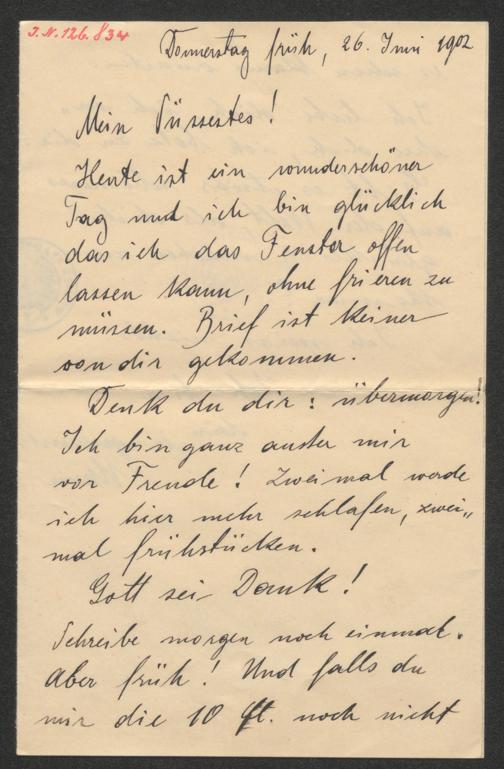 J.N. 126.834
Donnerstag früh, 26. Juni 1902
Mein Süssestes!
Heute ist ein wunderschöner
Tag und ich bin glücklich
das ich das Fenster offen
lassen kann, ohne frieren zu
müssen. Brief ist keiner
von dir gekommen.
Denk du dir: übermorgen!
Ich bin ganz auster mir
vor Freude! Zweimal werde
ich hier mehr schlafen, zwei„
mal frühstücken.
Gott sei Dank!
Schreibe morgen noch einmal.
Aber früh! Und falls du
mir die 10 fl. noch nicht